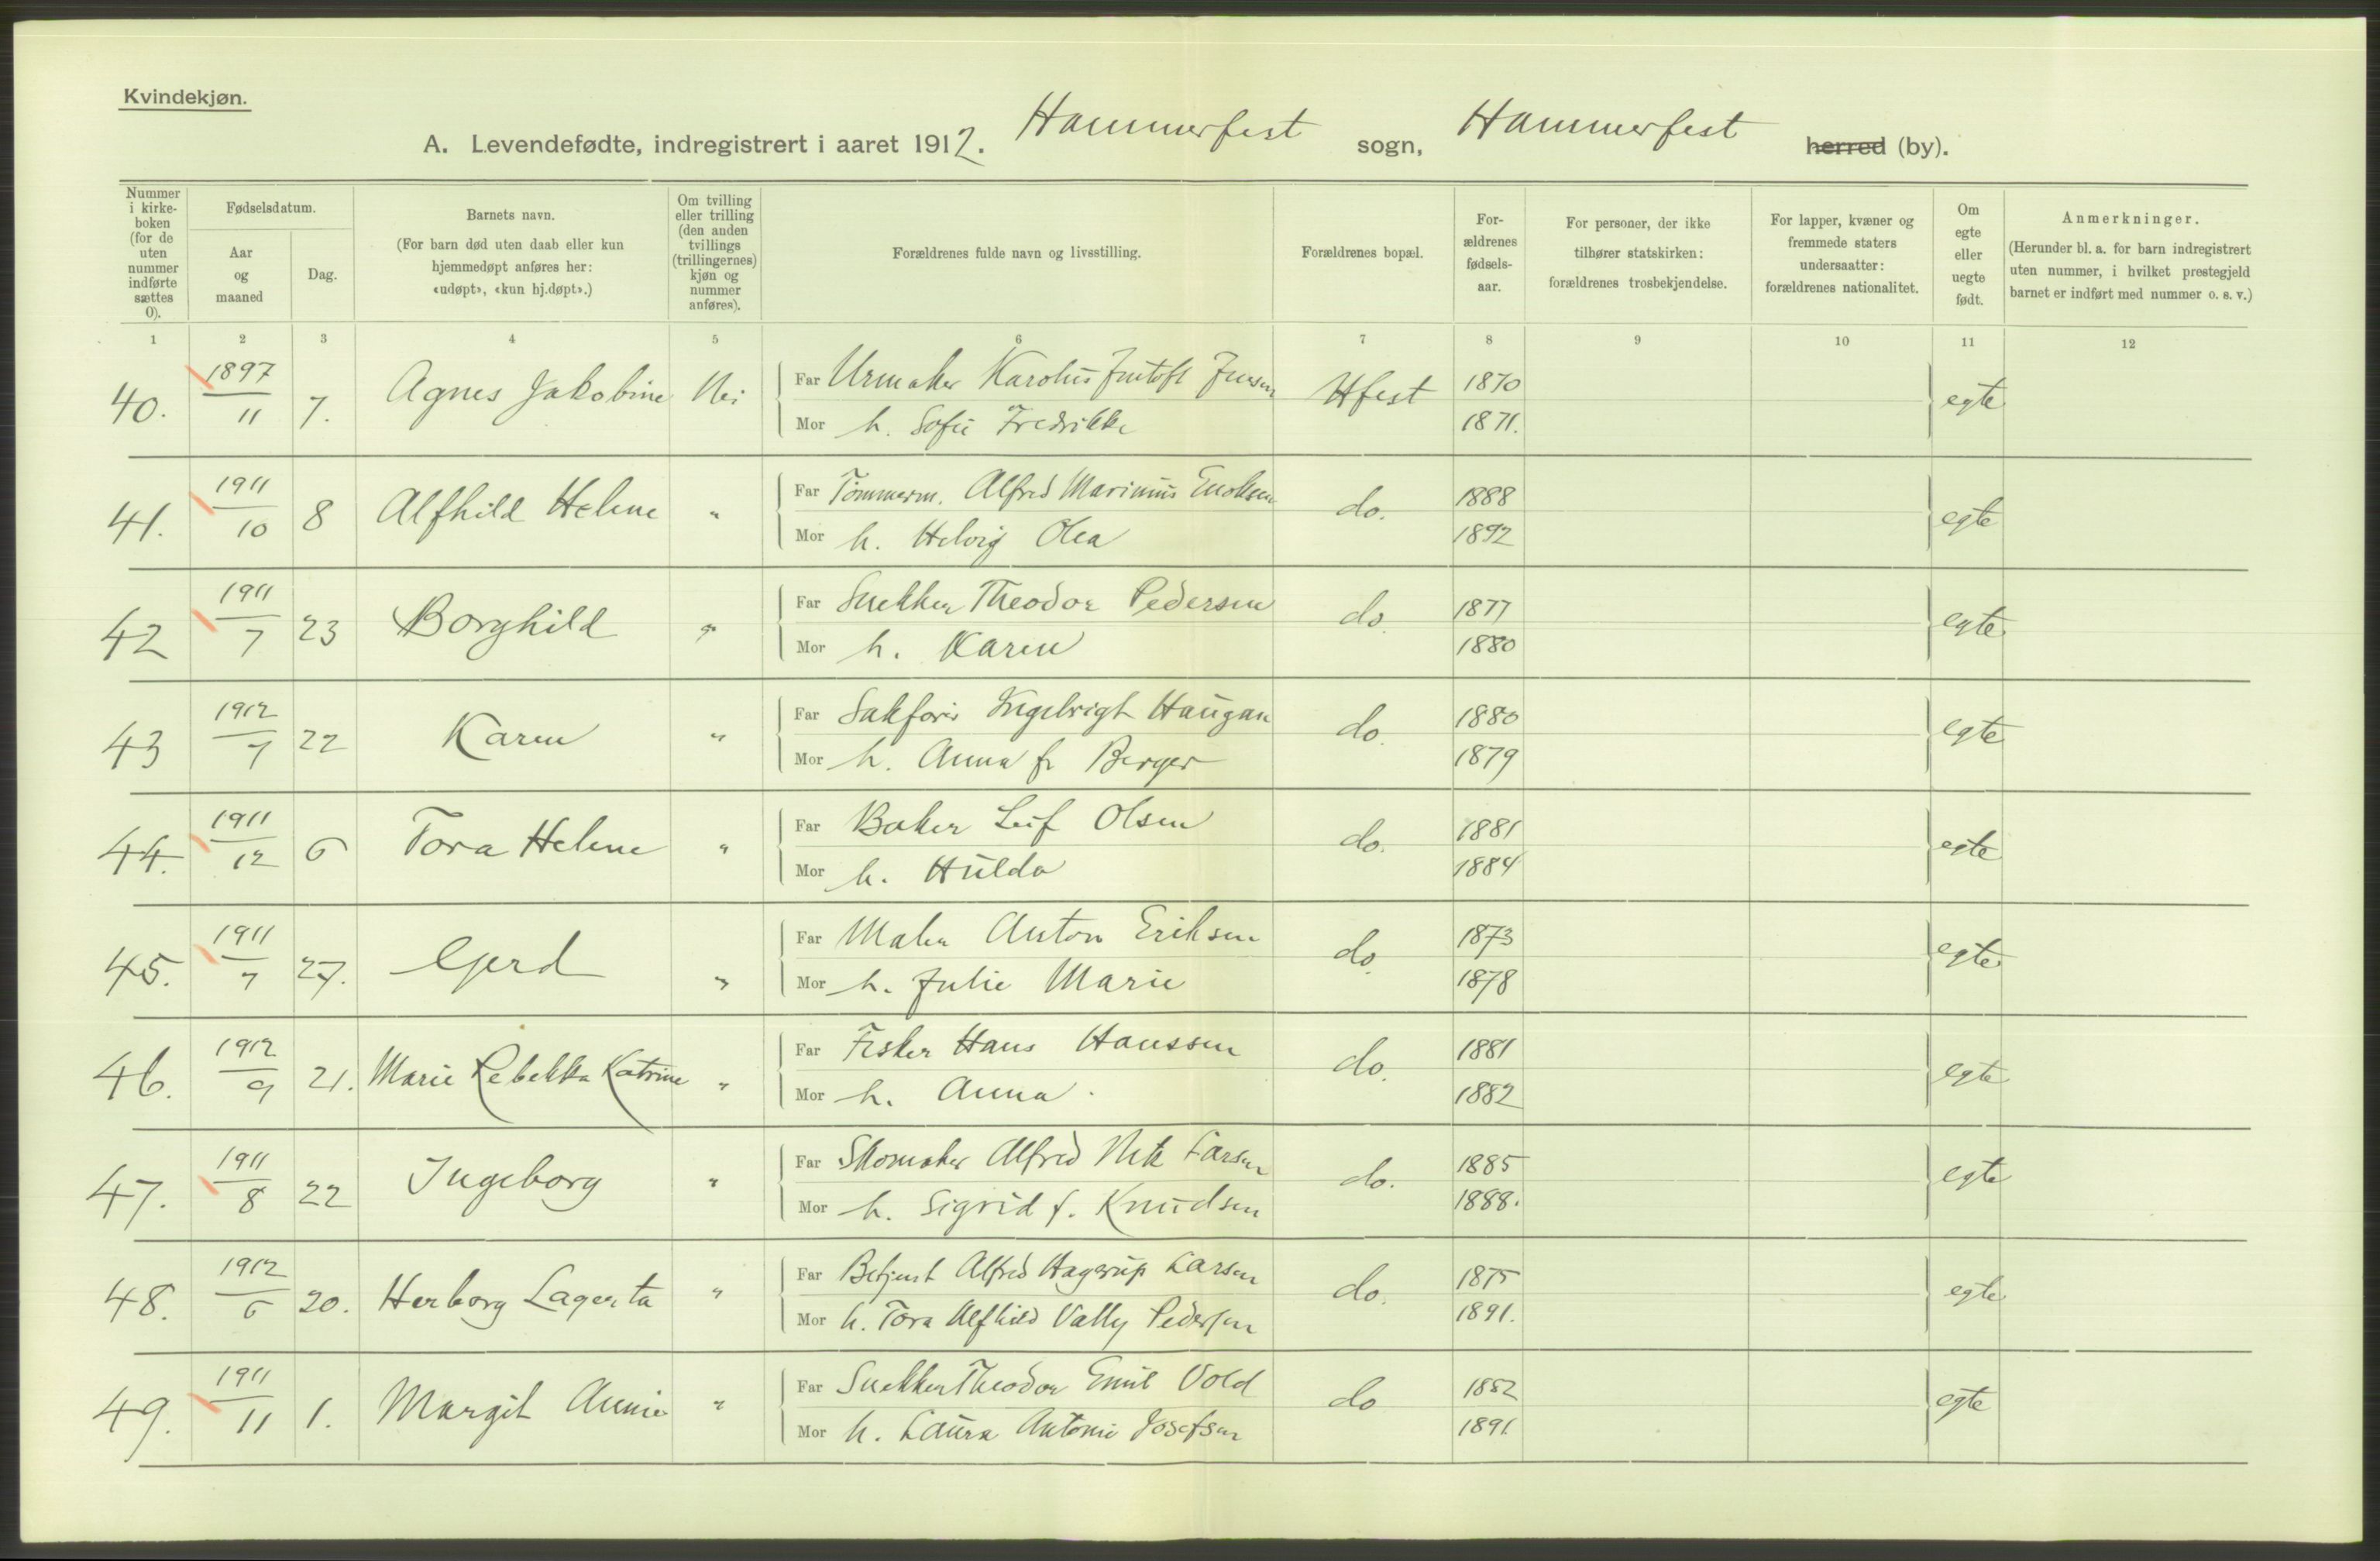 Kvindekjøn.
A. Levendefødte, indregistrert i aaret 1912. Hammerfest sogn, Hammerfest herred (by).
Nummer i kirke-boken (for de uten nummer indførte sættes 0).
Fødselsdatum.
Aar og maaned
Dag.
Barnets navn.
(For barn død uten daab eller kun hjemmedøpt anføres her: «udøpt», «kun hj.døpt».)
Om tvilling eller trilling (den anden tvillings (trillingernes) kjøn og nummer anføres).
Forældrenes fulde navn og livsstilling.
Forældrenes bopæl.
For-ældrenes fødsels-aar.
For personer, der ikke tilhører statskirken: forældrenes trosbekjendelse.
For lapper, kvæner og fremmede staters undersaatter: forældrenes nationalitet.
Om egte eller uegte født.
Anmerkninger.
(Herunder bl. a. for barn indregistrert uten nummer, i hvilket prestegjeld barnet er indført med nummer o. s. v.)
1 2 3 4 5 6 7 8 9 10 11 12
40. 1897/11 7. Agnes Jakobine Nei Far Urmaker Karolus Jensen Hfest 1870 egte
Mor h. Sofie Fredrikke 1871.
41. 1911/10 8 Alfhild Helene " Far Tømmerm. Alfred Marinius Enoksen do. 1888 egte
Mor h. Helvig Olea 1892
42 1911/7 23 Borghild " Far Snekker Theodor Pedersen do. 1877 egte
Mor h. Karen 1880
43 1912/7 22 Karen " Far Sakfører Ingebrigt Haugan do. 1880 egte
Mor h. Anna f. Berger 1879
44. 1911/12 6 Tora Helene " Far Baker Leif Olsen do. 1881 egte
Mor h. Hulda 1884
45. 1911/7 27. Gerd " Far Maler Anton Eriksen do. 1873 egte
Mor h. Julie Marie 1878
46. 1912/9 21. Marie Rebekka Katrine " Far Fisker Hans Hanssen do. 1881 egte
Mor h. Anna. 1882
47. 1911/8 22 Ingeborg " Far Skomaker Alfred Nik Larsen do. 1885 egte
Mor h. Sigrid f. Knudsen 1888.
48. 1912/6 20. Herborg Lagerta " Far Betjent Alfred Hagerup Larsen do. 1875 egte
Mor h. Tora Alfhild Vally Pedersen 1891.
49. 1911/11 1. Margit Annie " Far Snekker Theodor Emil Vold do 1882 egte
Mor h. Laura Antonie Josefsen 1891.